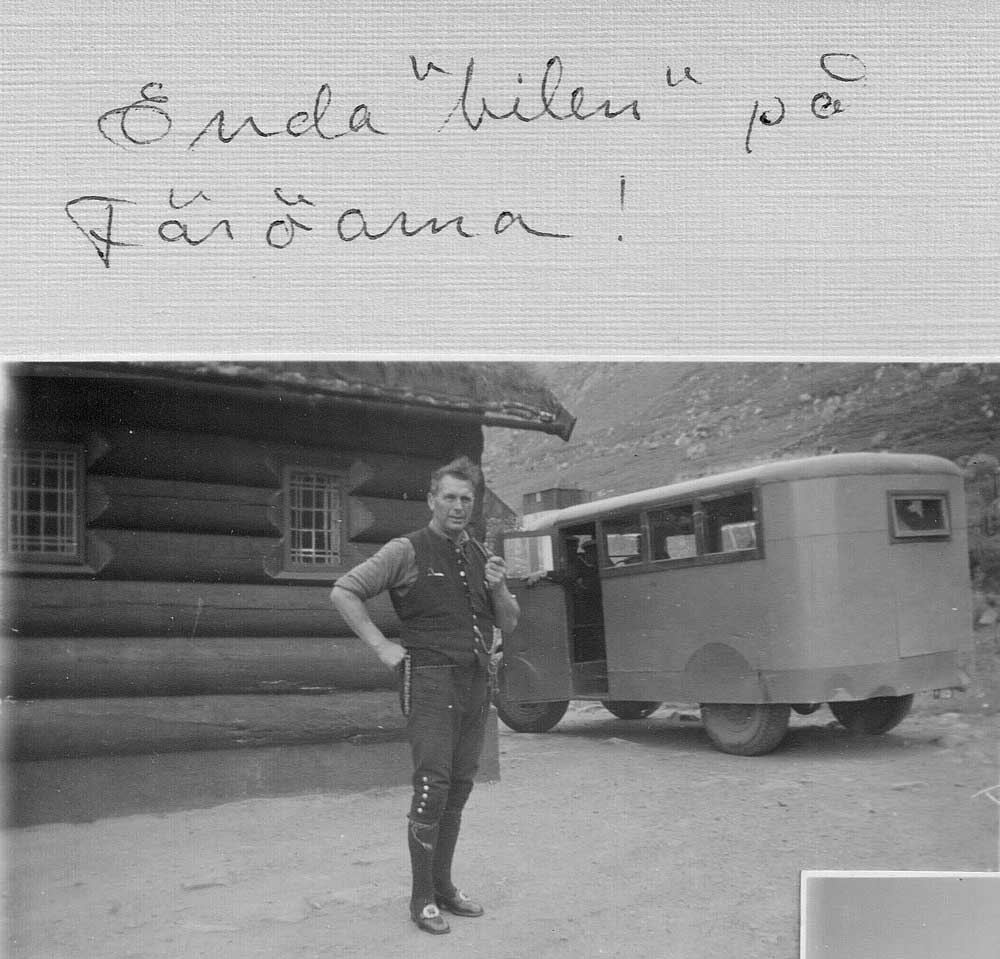 Enda "bilen" på
Färöarna!